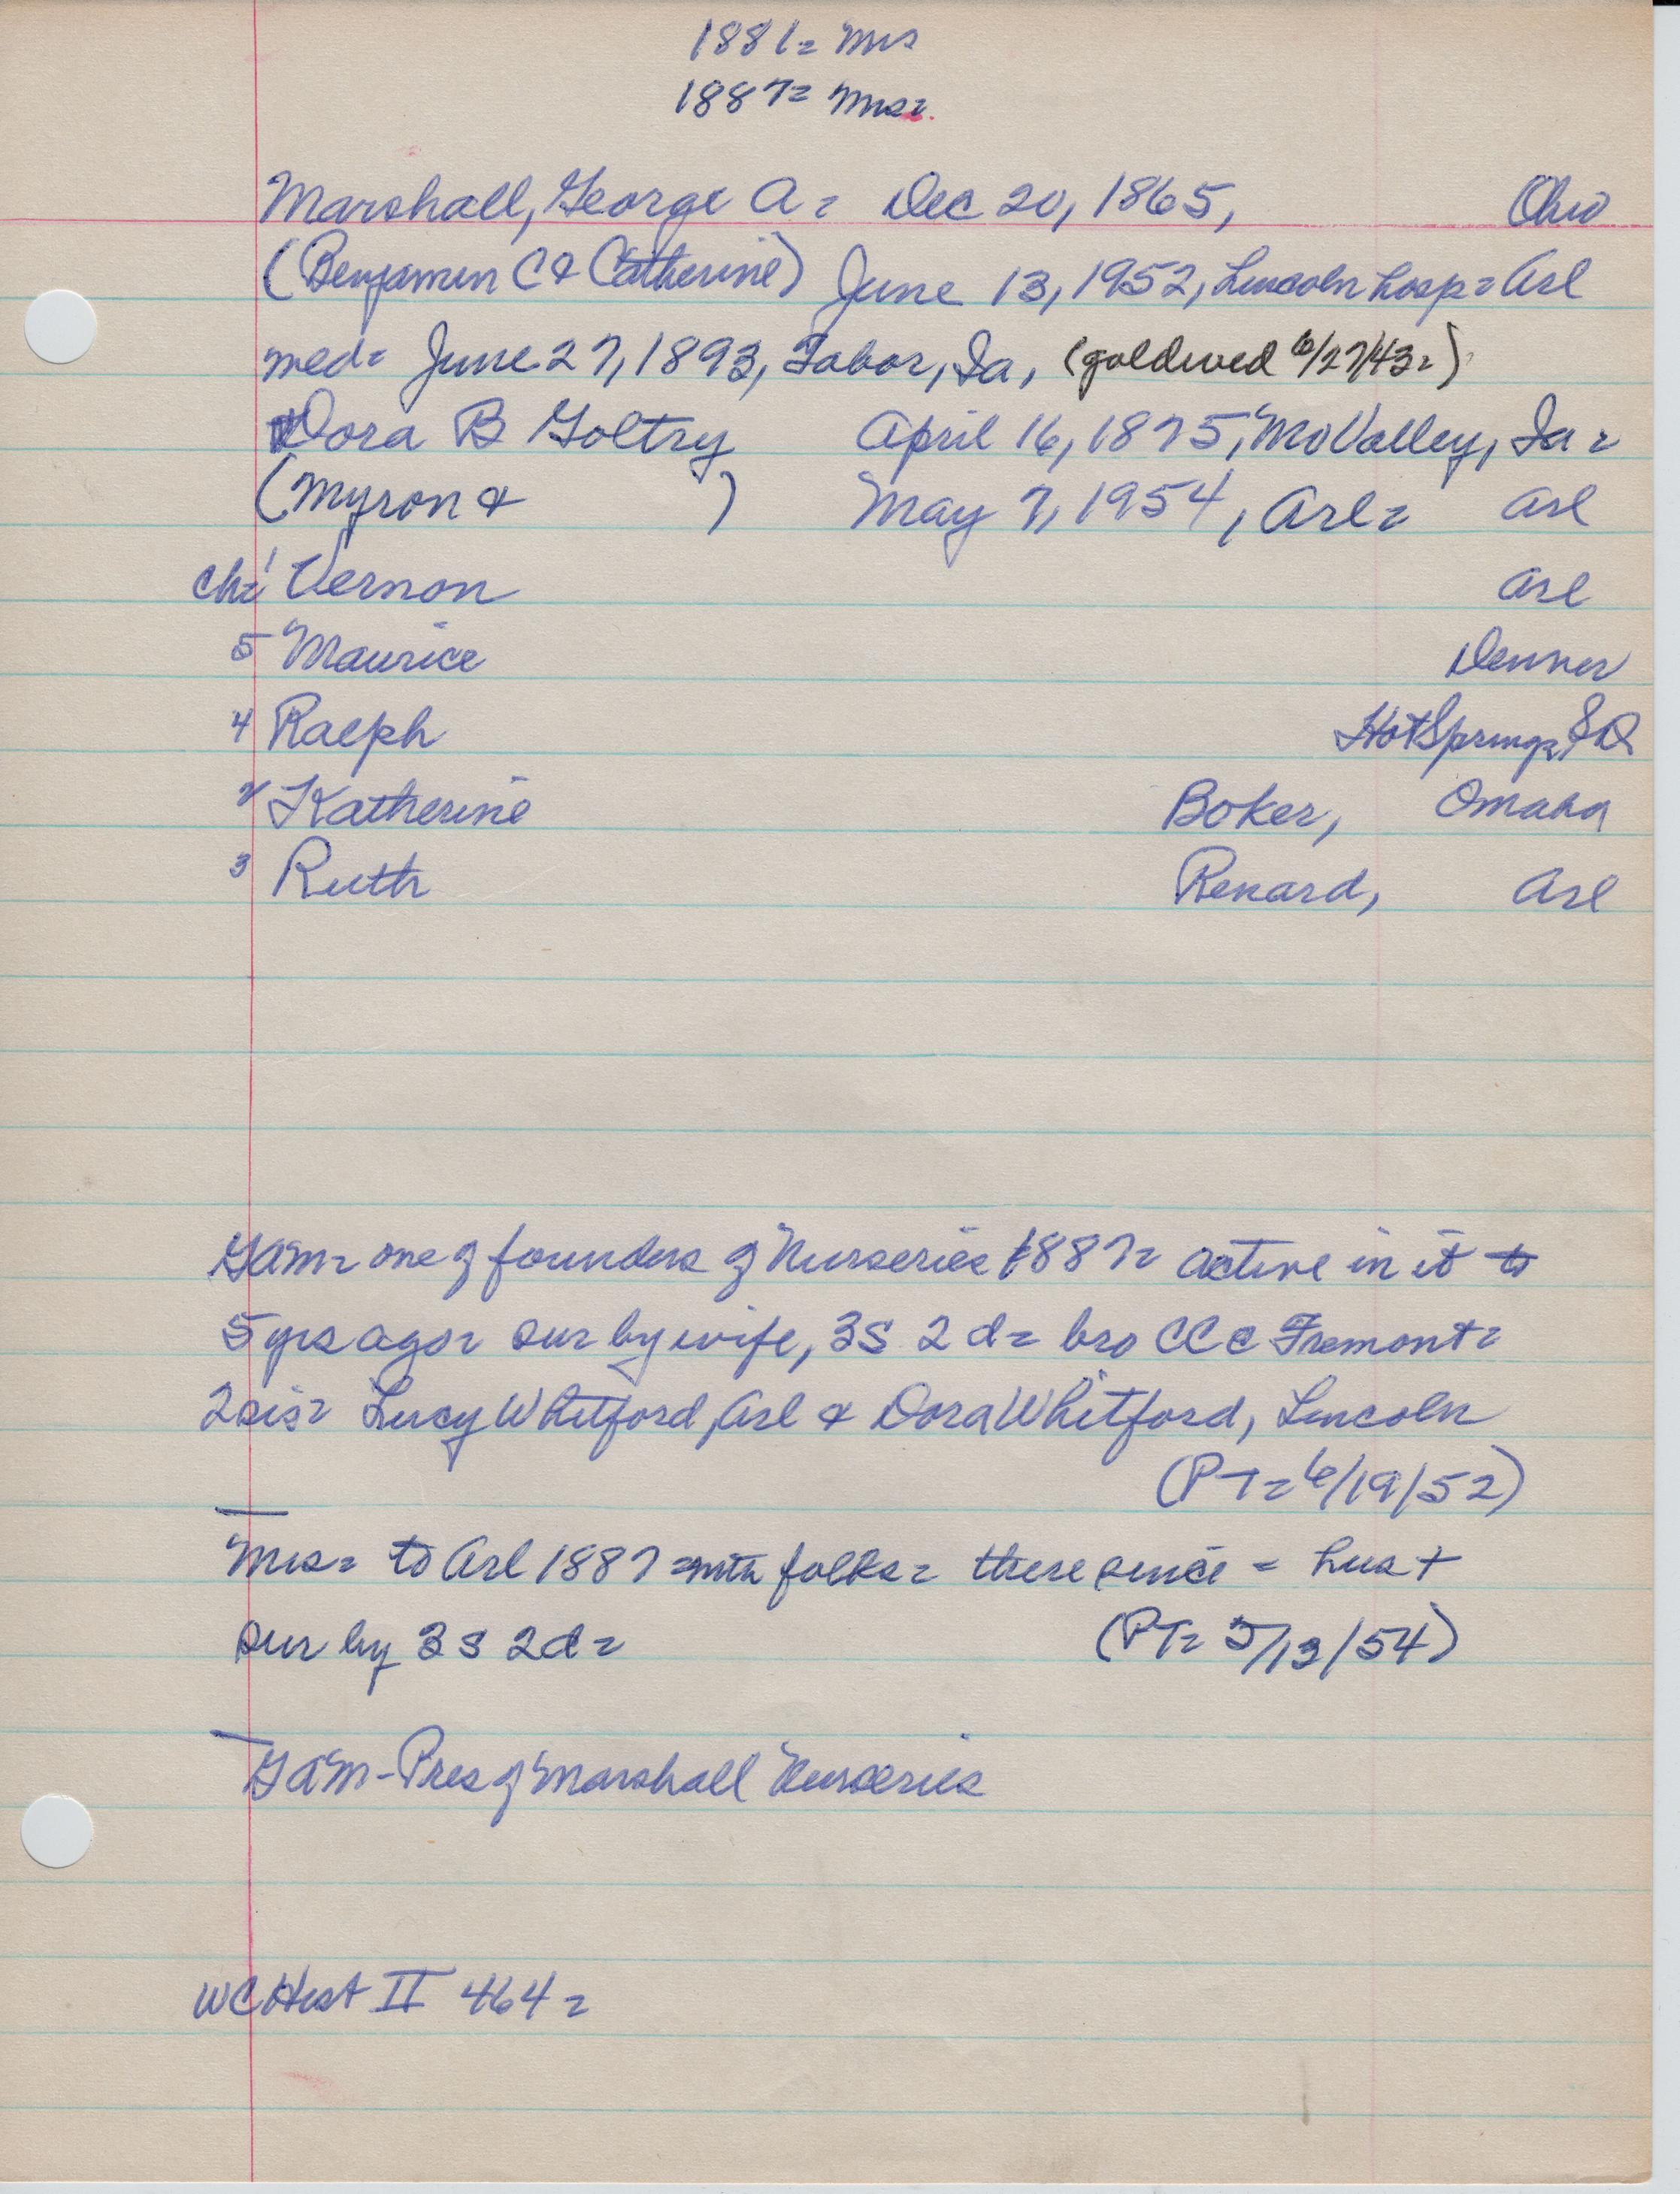 1881= Mrs
1887= Mrs=
Marshall, George A= Dec 20, 1865, Ohio
(Benjamin C & Catherine) June 13, 1952, Lincoln hosp= Arl
wed= June 27, 1893, Tabor, Ia, (goldwed 6/27/43=)
Dora B Goltry April 16, 1875, Mo Valley, Ia=
(Myron & ) May 7, 1954, Arl= Arl
Ch= 1 Vernon Arl
5 Maurice Denver
4 Ralph Hot Springs, SD
2 Katherine Boker, Omaha
3 Ruth Renard, Arl
GAM= one of founders of Nurseries 1887= active in it to
5 yrs ago= sur by wife, 3s 2d= bro CC Fremont=
2 sis= Lucy Whitford, Arl & Dora Whitford, Lincoln
(PT= 6/19/52)
Mrs= to Arl 1887 with folks= there since = hus +
sur by 3s 2d= (PT= 5/13/54)
GAM- Pres of Marshall Nurseries
WC Hist II 464=